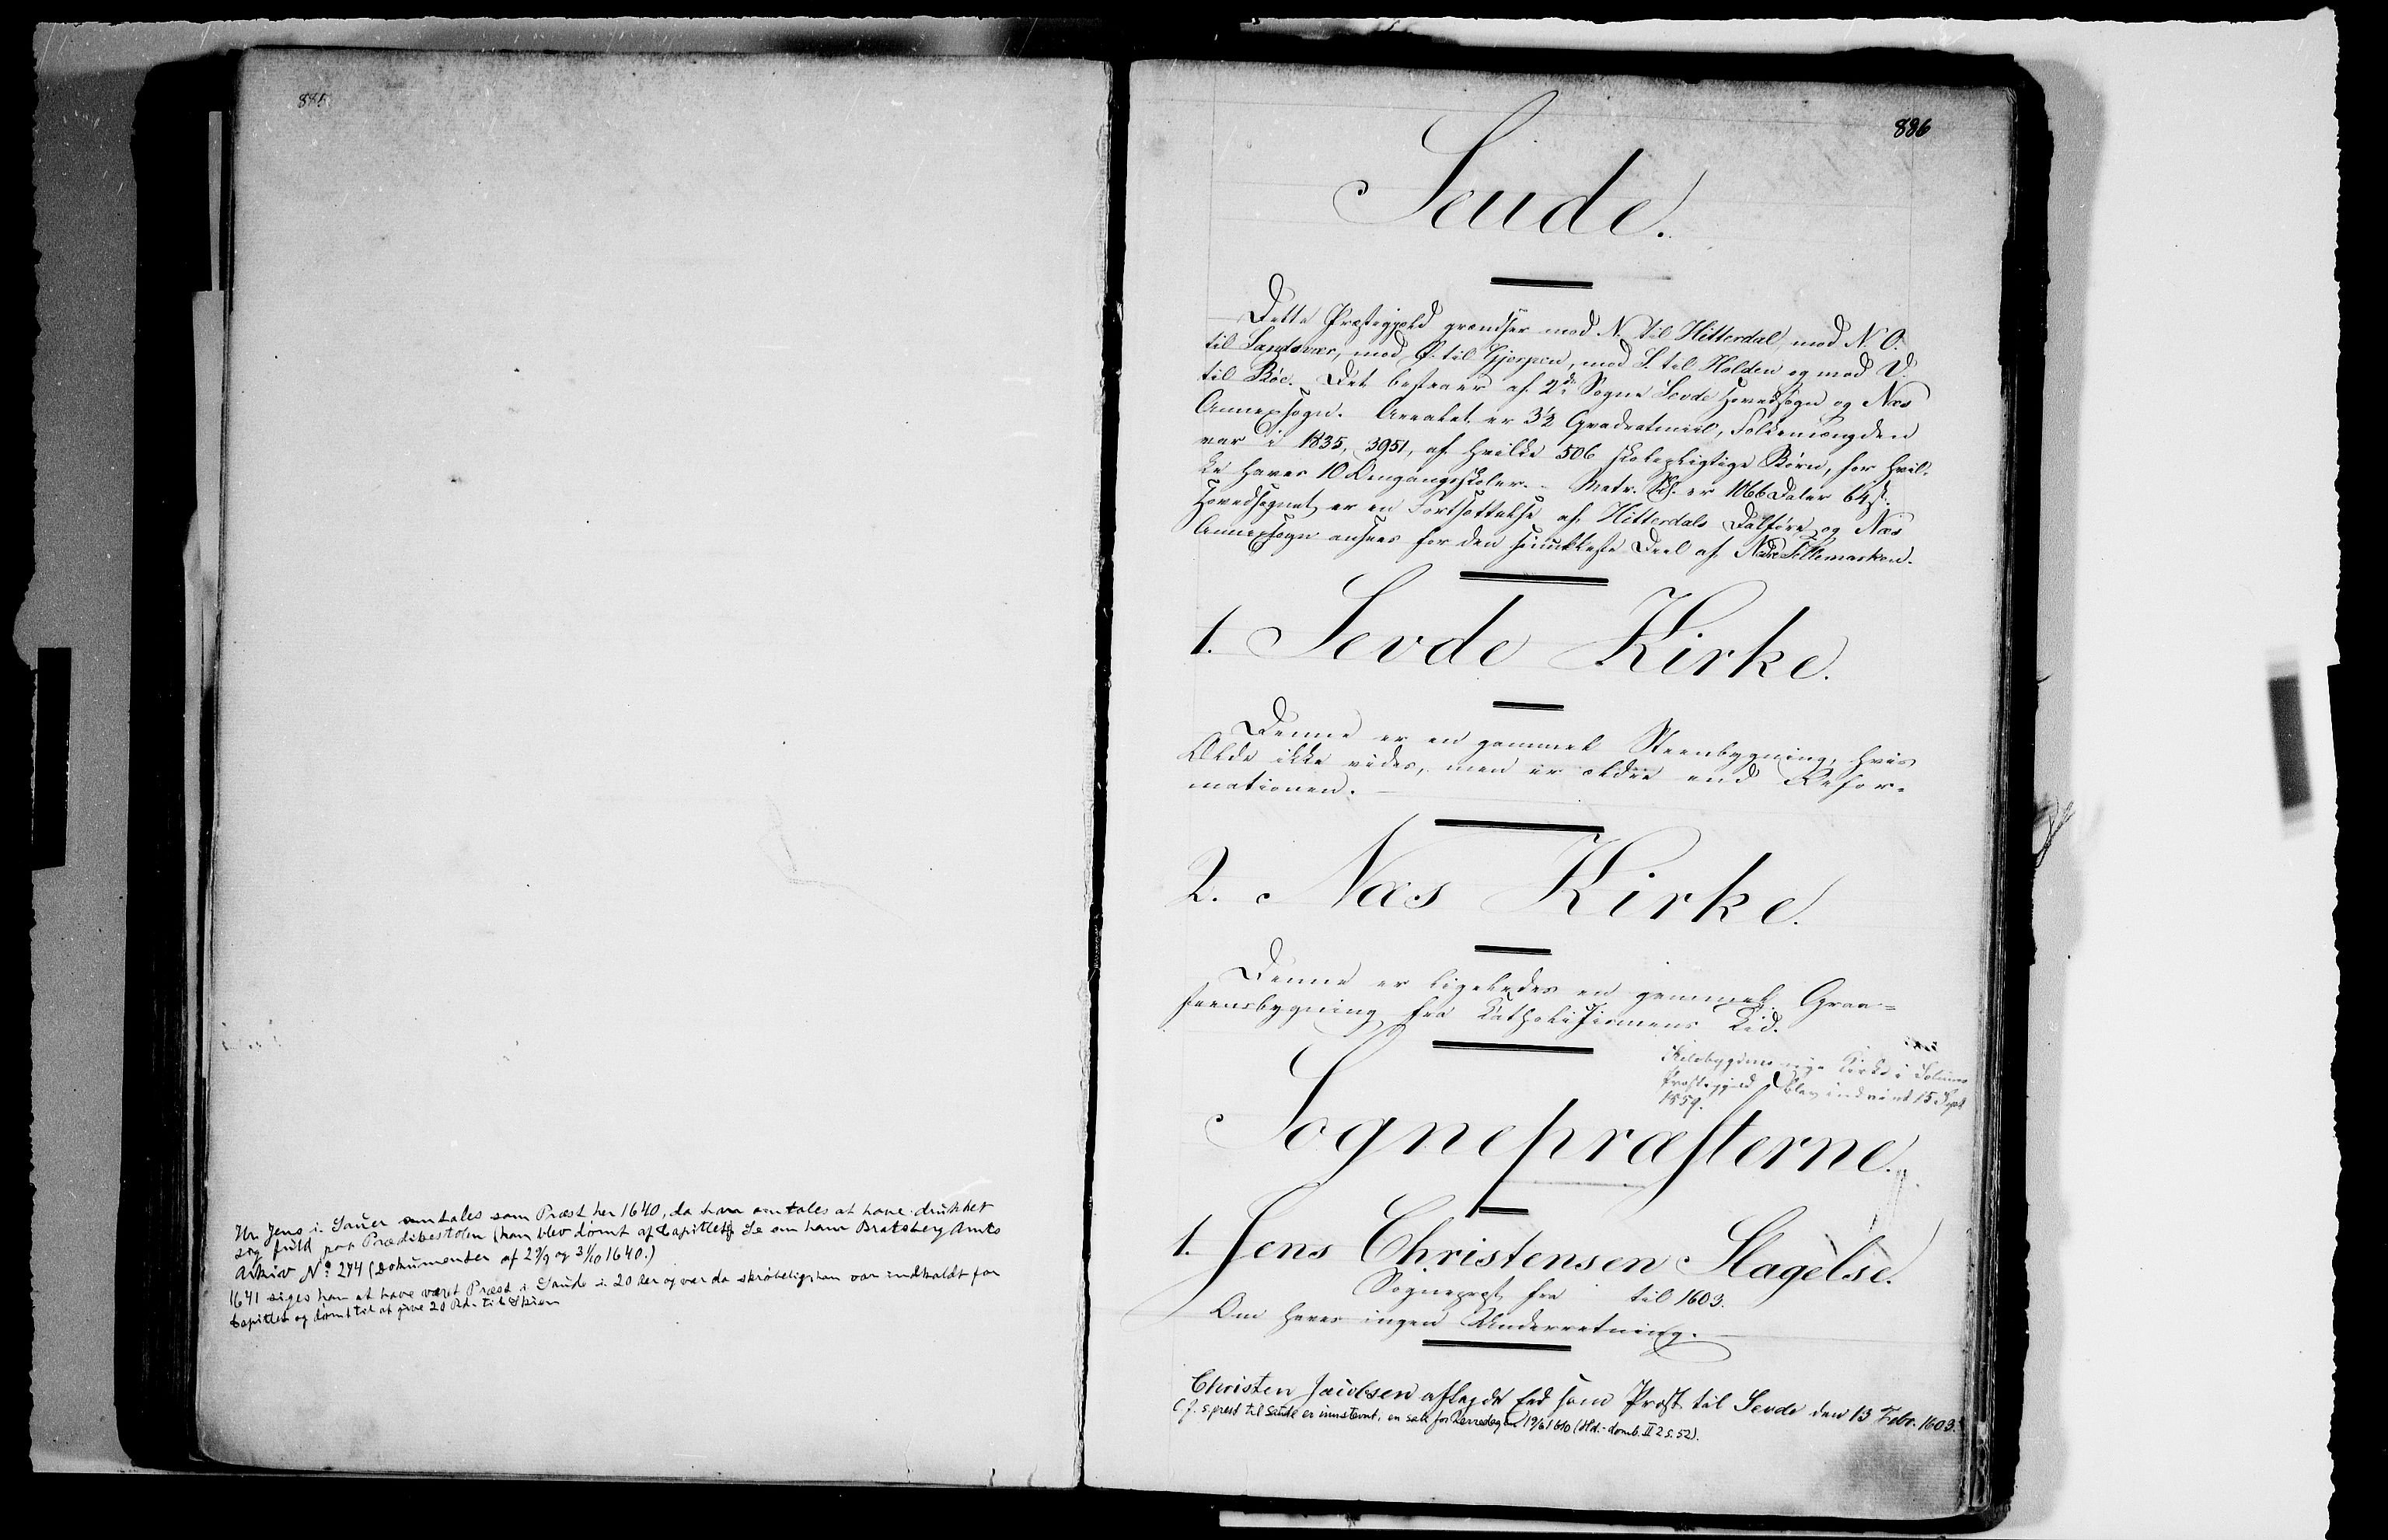 885
Hr. Jens i Sauer omtales som Præst her 1640, da han omtales at have drukket
sig fuld paa Prædikestolen (han blev dømt af Capitlet). Se om ham Bratsberg Amts
Arkiv No. 274 (Dokumenter af 2/9 og 31/10 1640.)
1641 siges han at have været Præst i Saude i 20 Aar og var da skrøbelig, han var indkaldt for
Capitlet og dømt til at give 20 Rdr. til Skien
886
Seude.
Dette Præstegjeld grændser mod N. til Hitterdal, mod N.O.
til Sandsvær, mod Ø. til Gjerpen, mod S. til Holden og mod V.
til Bøe. Det bestaaer af 2de Sogne Sevde Hovedsogn og Næs
Annexsogn. Arealet er 3½ Qvadratmiil, Folkemængden
var i 1835, 3951, af hvilke 506 skolepligtige Børn, for hvil-
ke haves 10 Omgangsskoler. - Matr. Sk. er 1066 Daler 64 s.
Hovedsognet er en Fortsættelse af Hitterdals Dalføre og Næs
Annexsogn ansees for den smukkeste Deel af Nedre Tellemarken.
1. Sevde Kirke.
Denne er en gammel Steenbygning, hvis
Ælde ikke vides, men er ældre end Refor-
mationen.
2. Næs Kirke.
Denne er ligeledes en gammel Graa-
steensbygning fra Katholicismens Tid.
Kilebygdens nye Kirke i Solums
Præstegjeld blev indviet 15 Sept
1859.
Sognepræsterne.
1. Jens Christensen Slagelse.
Sognepræst fra til 1603.
Om haves ingen Underretning.
Christen Jacobsen aflagde Eed som Præst til Sevde den 13 Febr. 1603.
C. J. s prest til Saude er innstevnt i en sak for Herredagen 19/6 1610 (Hd.-domb. II 2 s. 52).